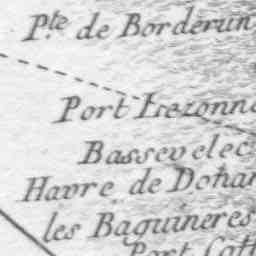 P.te de Borderun
Port Lrezonne
Bassevelec
Havre de Dohar
les Baguineres
Port Cott